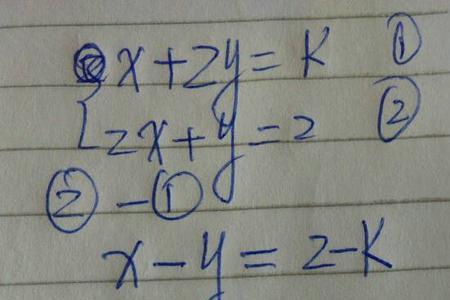 x+2y=K ①
2x+y=2 ②
②-①
x-y=2-K